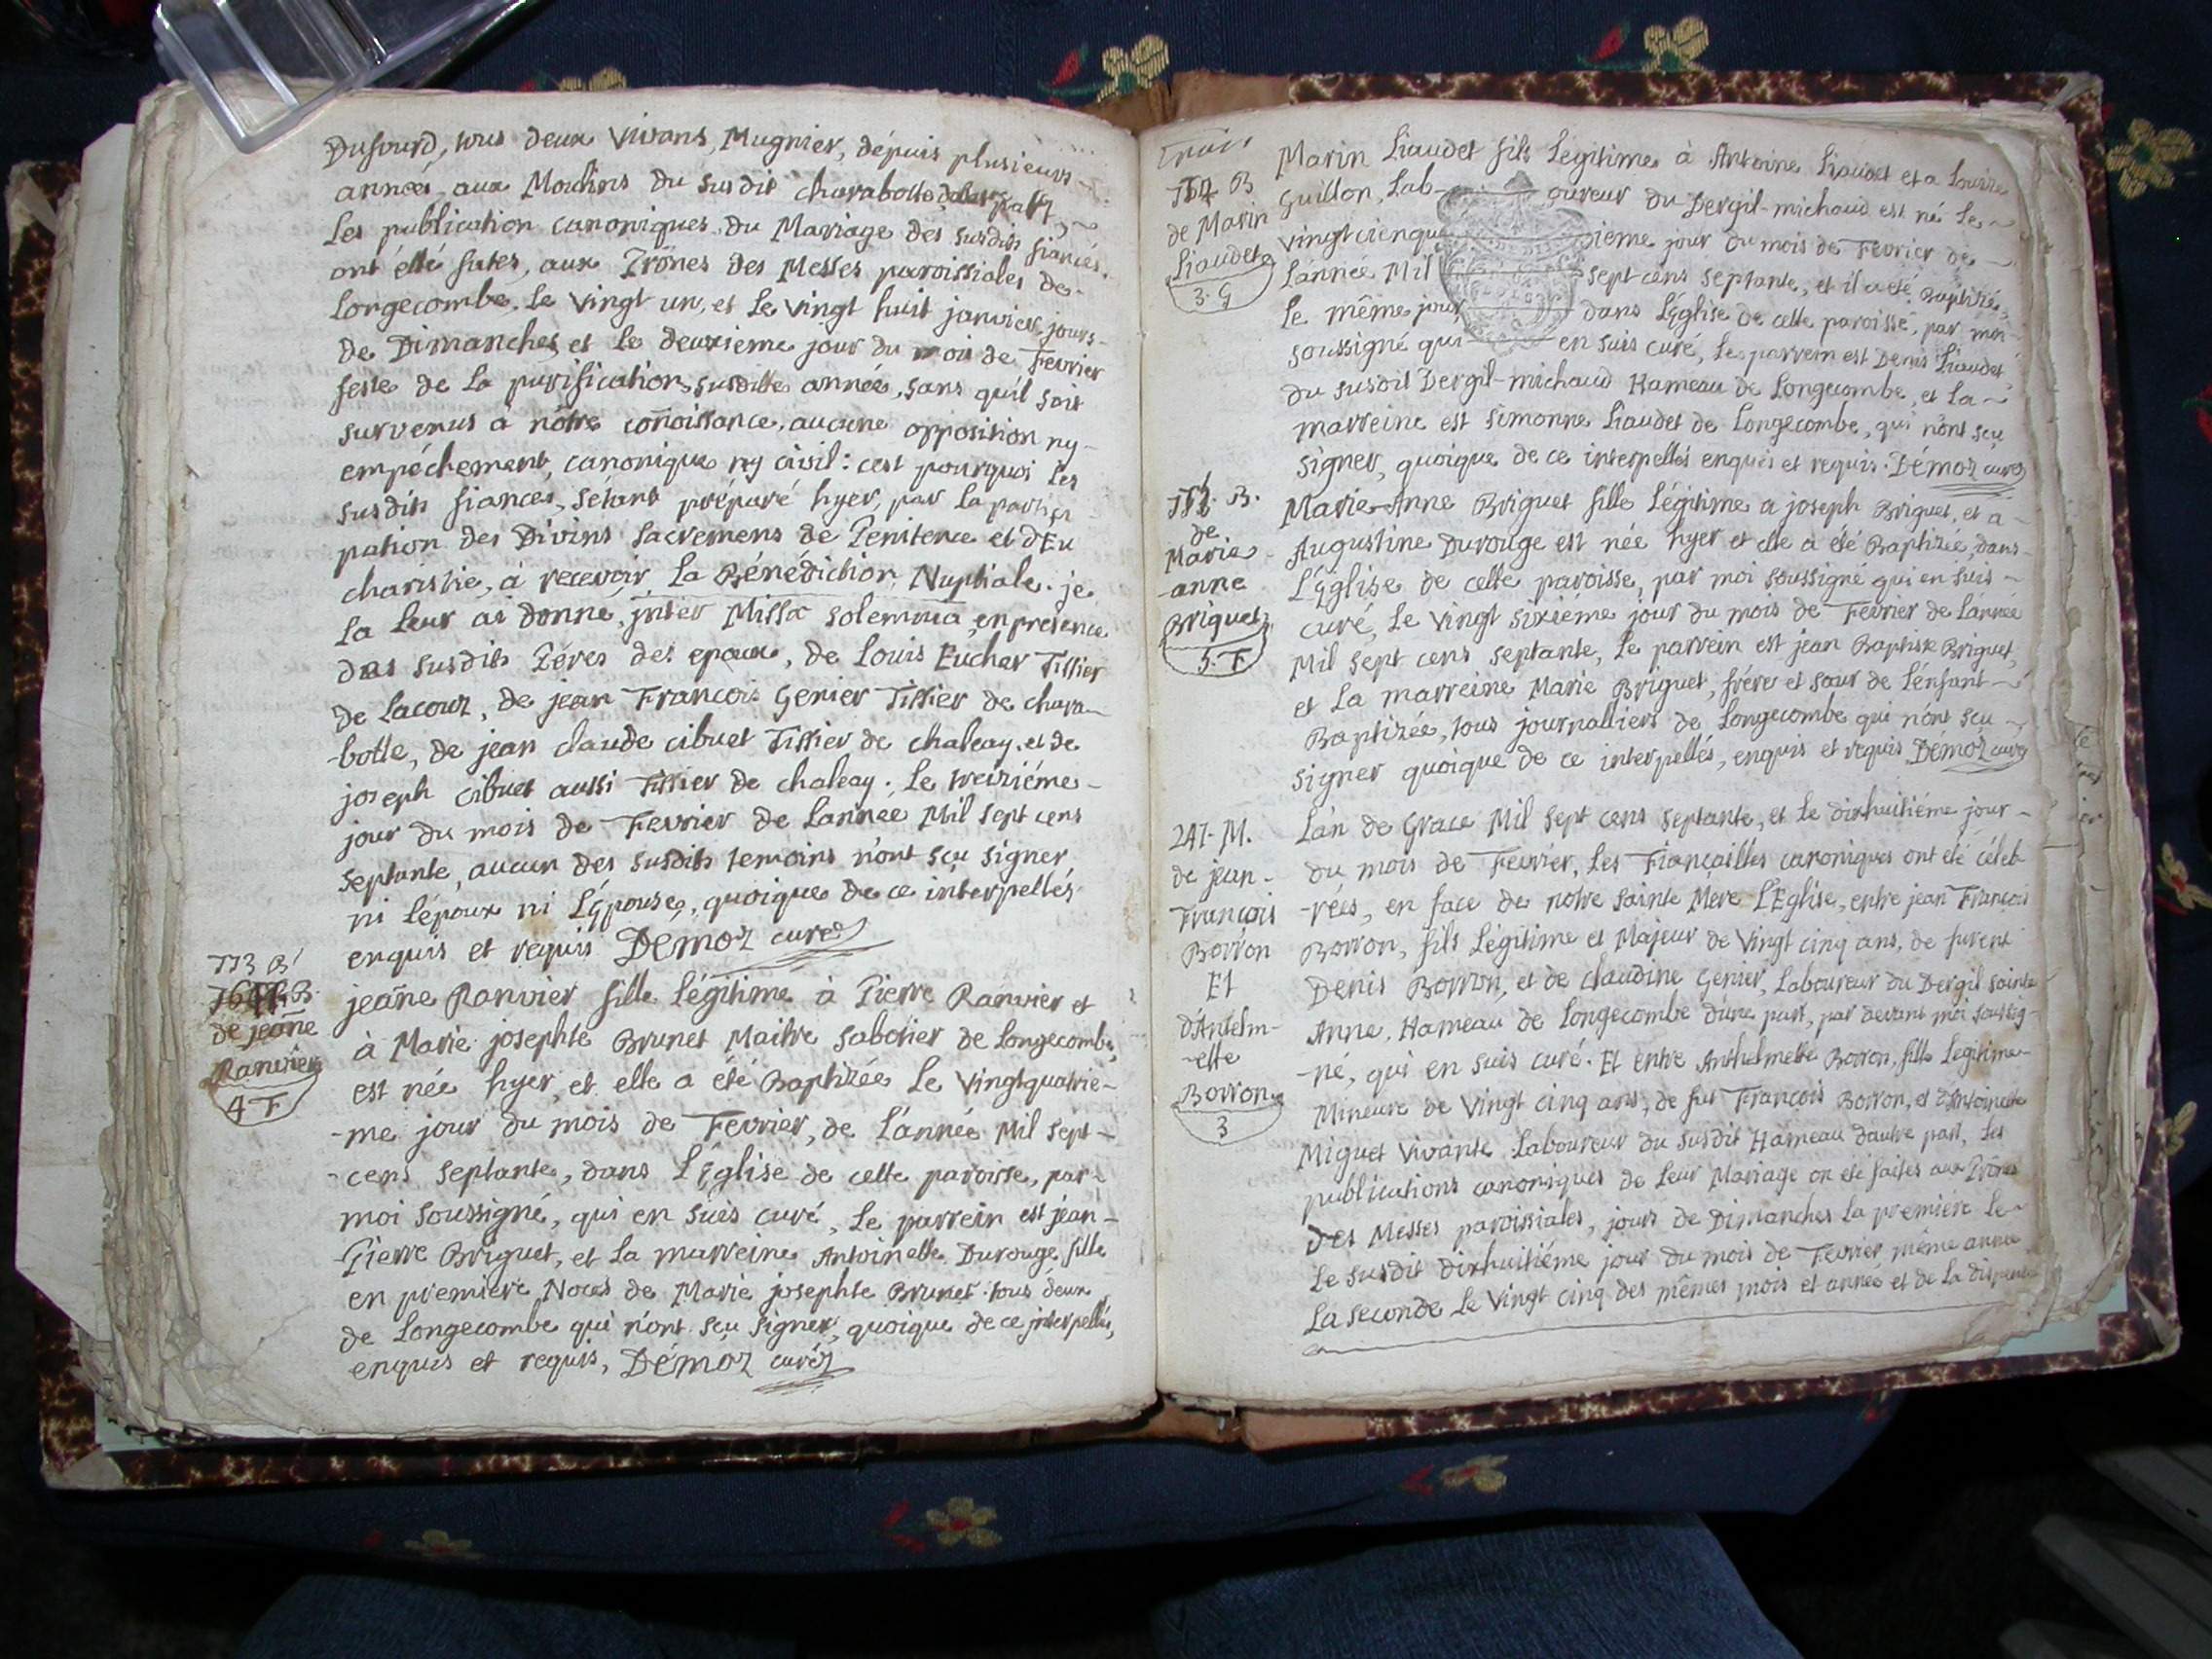 Dufourd, tous deux vivans, Mugnier, dépuis plusieurs
année, aux Moulins du susdit charabotte, d'autre part,
Les publication canoniques du Mariage des susdits fiancés.
ont étté faites, aux Prônes des Messes paroissiales de
Longecombe. Le vingt un, et Le vingt huit janvier, jours
de Dimanches, et Le deuxieme jour du mois de Fevrier
feste de La purification, susditte année, sans qu'il soit
survenus à nôtre coñoissance, aucune opposition ny
empéchement, canonique ny civil : c'est pourquoi Les
susdits fiances, s'étant préparé hyer, par La partici
pation des Divins sacremens de Penitence et d'Eu
charistie, à recevoir La Bénédiction Nuptiale. je
La Leur ai donne, jnter Missæ solemnia, en presence
des susdits Péres des epoux, de Louis Eucher Tissier
de Lacour, de jean François Genier Tissier de chara
-botte, de jean claude cibuet Tissier de chaleay. et de
joseph cibuet aussi Tissier de chaleay. Le treiziéme
jour du mois de Fevrier de L'année Mil sept cens
septante, aucun des susdits temoins n'ont sçu signer
ni L'époux ni L'Épouse, quoique de ce interpellés
enquis et requis Démoz curé
113 B
de jeañe
Ranvier
4 F
jeañe Ranvier fille Légitime à Pierre Ranvier et
à Marie josephte Brunet Maitre sabotier de Longecombe,
est née hyer, et elle a été Baptizée Le vingtquatrie-
-me jour du mois de Fevrier, de L'année Mil sept-
-cens septante, dans L'Église de cette paroisse, par-
moi soussigné, qui en suis curé, Le parrein est jean-
-Pierre Briguet, et La marreine Antoinette Durouge, fille
en premiere Noces de Marie josephte Brunet. tous deux
de Longecombe qui n'ont sçu signer, quoique de ce jnterpellés,
enquis et requis, Démoz curé
B
de Marin
Liaudet
3. G
Marin Liaudet fils Legitime à Antoine Liaudet et a Louise
Guillon, Lab-oureur du Dergil-michaud est né Le
vingtcienquieme jour du mois de Fevrier de
L'année Mil sept cens septante, et il a été Baptizé,
Le même jour dans L'Église de cette paroisse, par moi
soussigné qui en suis curé, Le parrein est Denis Liaudet
du susdit Dergil-michaud Hameau de Longecombe, et La
marreine est simonne Liaudet de Longecombe, qui n'ont sçu
signer, quoique de ce interpellés enquis et requis. Démoz curé
B.
de
Marie
-anne
Briguet
5. F
Marie-Anne Briguet fille Légitime a joseph Briguet, et à
Augustine Durouge est née hyer et elle a été Baptizée, dans
L'Église de cette paroisse, par moi soussigné qui en suis
curé, Le vingt sixiéme jour du mois de Fevrier de L'année
Mil sept cens septante, Le parrein est jean Baptiste Briguet,
et La marreine Marie Briguet, frére et sœur de L'enfant
Baptizée, tous journalliers de Longecombe qui n'ont sçu
signer quoique de ce interpellés, enquis et requis Démoz curé
247- M.
de jean-
François
Borron
Et
d'Antelm-
-ette
Borron
3
L'an de Grace Mil sept cens septante, et Le dixhuitiéme jour
du mois de Fevrier, Les Fiançailles canoniques ont été céleb
-rées, en face de notre sainte Mere L'Eglise, entre jean François
Borron, fils Légitime et Majeur de vingt cinq ans, de furent
Denis Borron, et de claudine Genier, Laboureur du Dergil sainte
Anne, Hameau de Longecombe d'une part, par devant moi soussig-
-né, qui en suis curé. Et entre Anthelmette Borron, fille Legitime
Mineure de vingt cinq ans, de fut François Borron, et d'Antoinette
Miguet vivante Laboureur du susdit Hameau d'autre part, Les
publications canoniques de Leur Mariage on été faites aux Prônes
des Messes paroissiales, jours de Dimanches La premiére Le
Le susdit dixhuitiéme jour du mois de Fevrier même année
La seconde Le vingt cinq des mêmes mois et année et de La dispense